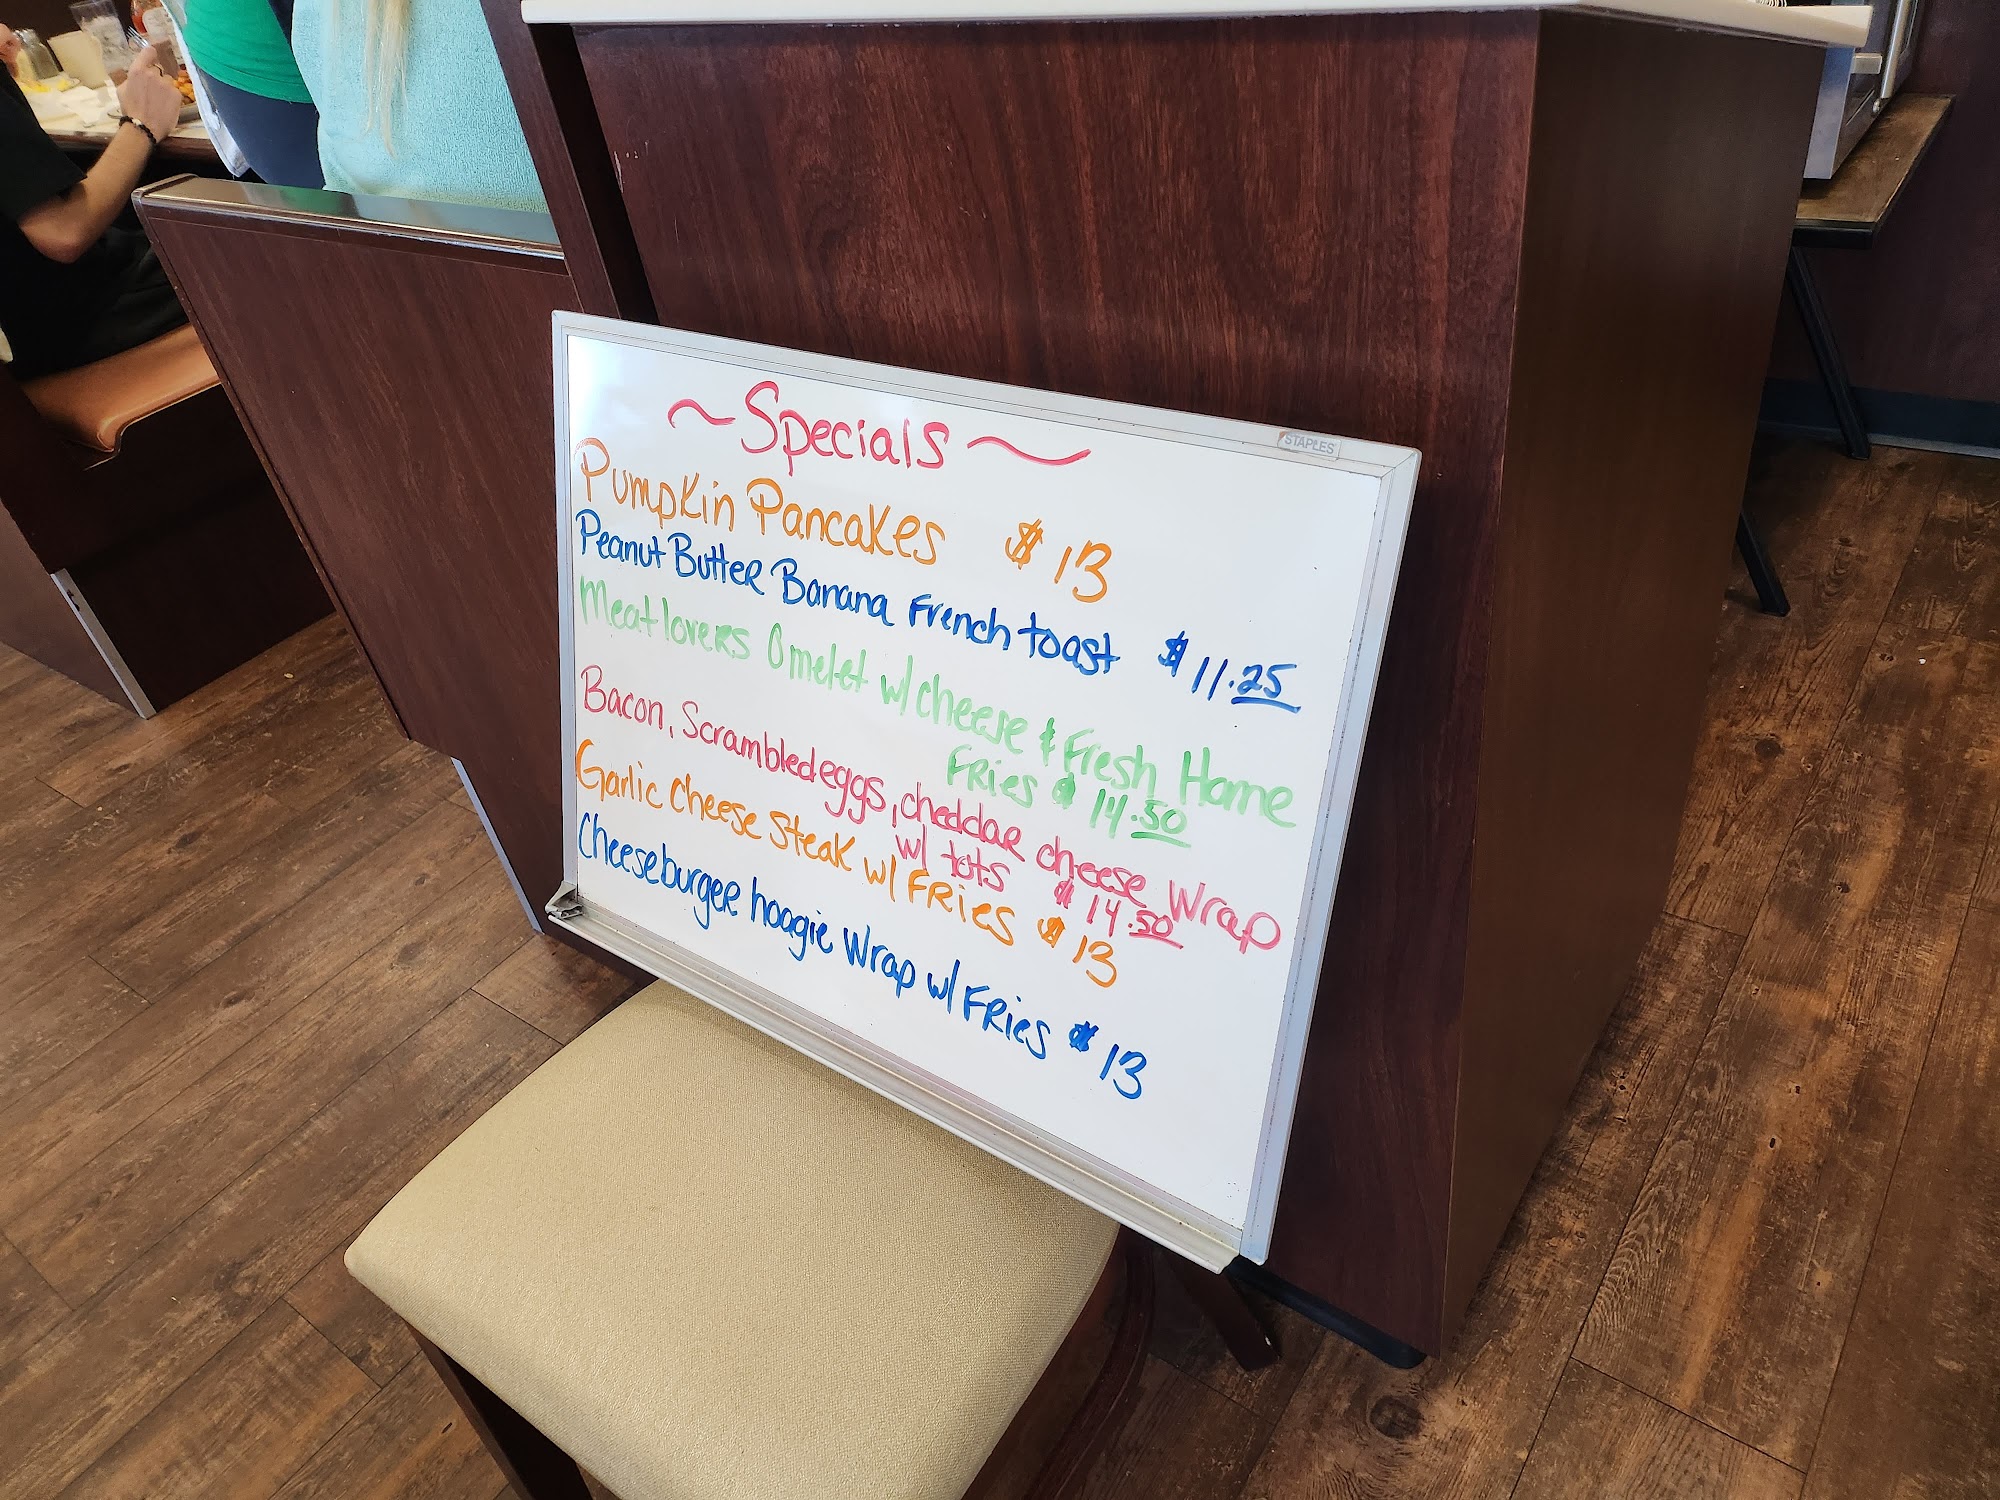 ~ Specials ~
STAPLES
Pumpkin Pancakes $13
Peanut Butter Banana French toast $11.25
Meatlovers Omelet w/ cheese & Fresh Home
Fries $14.50
Bacon, Scrambled eggs, cheddar cheese Wrap
w/ tots $14.50
Garlic Cheese Steak w/ Fries $13
Cheeseburger hoagie Wrap w/ Fries $13